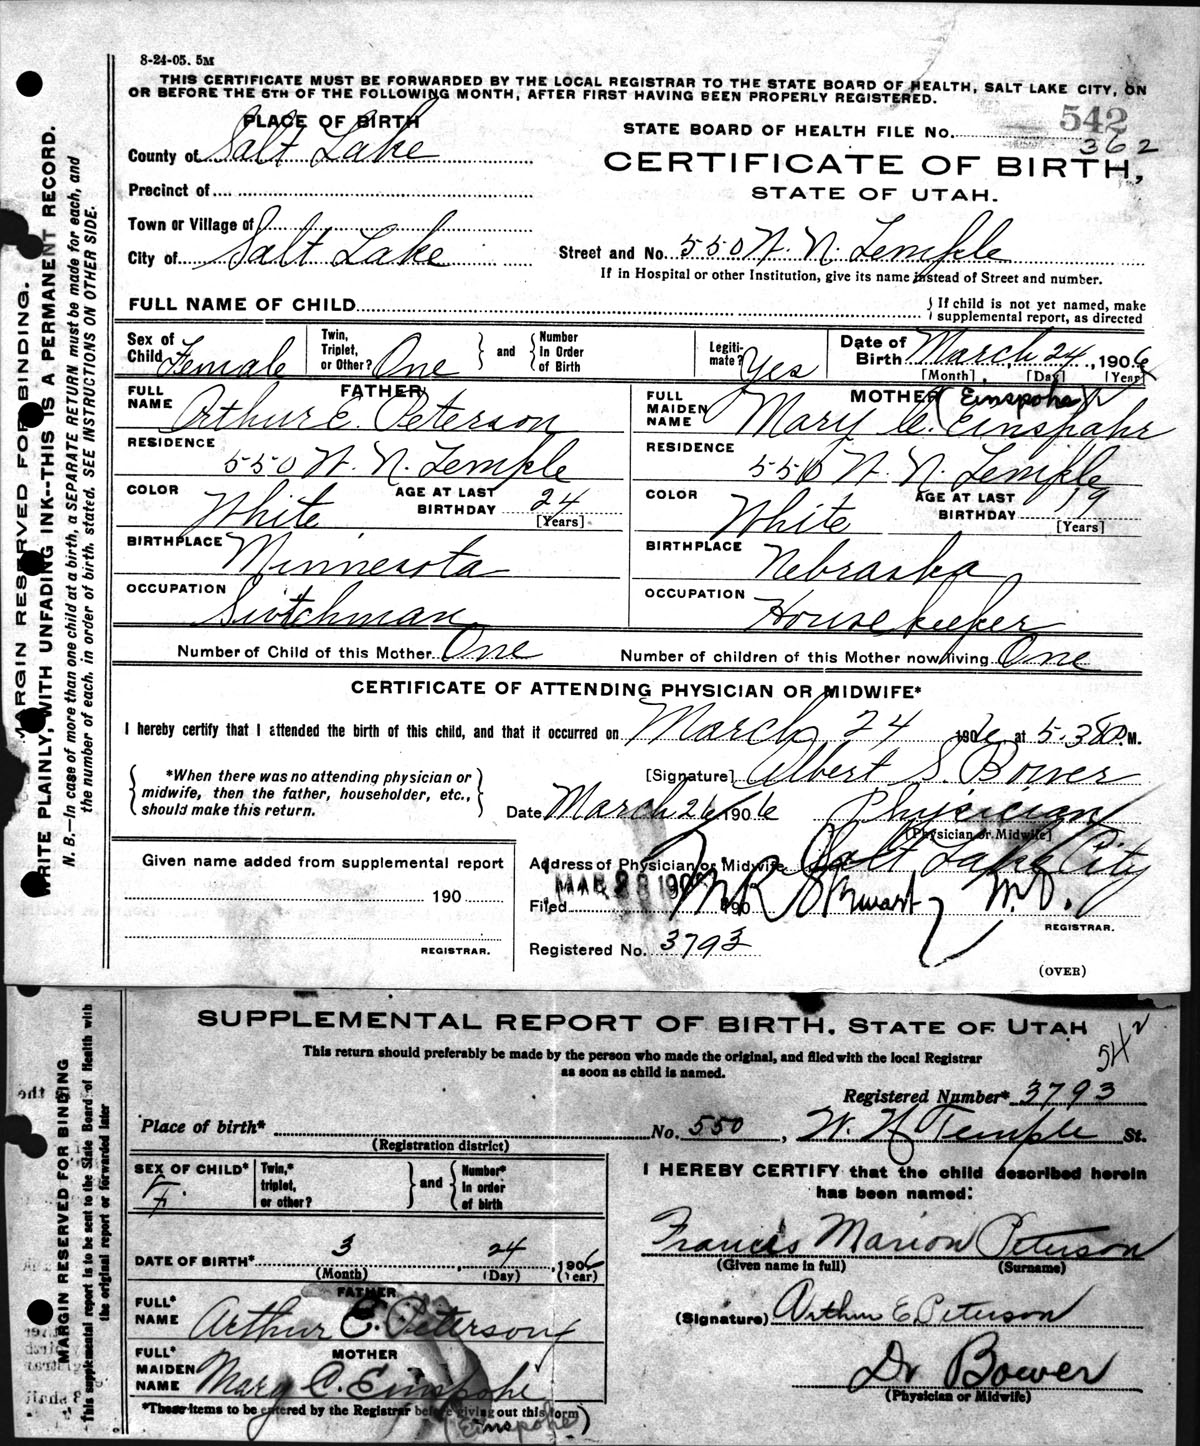 8-24-05. 5M
THIS CERTIFICATE MUST BE FORWARDED BY THE LOCAL REGISTRAR TO THE STATE BOARD OF HEALTH, SALT LAKE CITY, ON
OR BEFORE THE 5TH OF THE FOLLOWING MONTH, AFTER FIRST HAVING BEEN PROPERLY REGISTERED.
PLACE OF BIRTH
STATE BOARD OF HEALTH FILE No. 542
362
County of Salt Lake
CERTIFICATE OF BIRTH,
STATE OF UTAH.
Precinct of
Town or Village of
City of Salt Lake
Street and No. 550 W. N. Temple
If in Hospital or other Institution, give its name instead of Street and number.
FULL NAME OF CHILD
If child is not yet named, make
supplemental report, as directed
Sex of Child Female
Twin, Triplet, or Other? One
and
Number In Order of Birth
Legiti-mate? Yes
Date of Birth March 24, 1906
[Month] [Day] [Year]
FATHER
FULL NAME Arthur E. Peterson
RESIDENCE 550 W. N. Temple
COLOR White
AGE AT LAST BIRTHDAY 24
[Years]
BIRTHPLACE Minnesota
OCCUPATION Switchman
MOTHER (Einspohr)
FULL MAIDEN NAME Mary C. Einspahr
RESIDENCE 550 W. N. Temple
COLOR White
AGE AT LAST BIRTHDAY 19
[Years]
BIRTHPLACE Nebraska
OCCUPATION Housekeeper
Number of Child of this Mother One
Number of children of this Mother now living One
CERTIFICATE OF ATTENDING PHYSICIAN OR MIDWIFE*
I hereby certify that I attended the birth of this child, and that it occurred on March 24 1906, at 5.38 P.M.
*When there was no attending physician or
midwife, then the father, householder, etc.,
should make this return.
[Signature] Albert S. Bower
Date March 26 1906
Physician
(Physician or Midwife)
Given name added from supplemental report
190
REGISTRAR.
Address of Physician or Midwife Salt Lake City
MAR 28 190
Filed 190
M R Stewart M.D.
REGISTRAR.
Registered No. 3793
(OVER)
MARGIN RESERVED FOR BINDING.
WRITE PLAINLY, WITH UNFADING INK--THIS IS A PERMANENT RECORD.
N. B.—In case of more than one child at a birth, a SEPARATE RETURN must be made for each, and
the number of each, in order of birth, stated. SEE INSTRUCTIONS ON OTHER SIDE.
SUPPLEMENTAL REPORT OF BIRTH, STATE OF UTAH
This return should preferably be made by the person who made the original, and filed with the local Registrar
as soon as child is named.
542
Registered Number* 3793
Place of birth* No. 550, W. N Temple St.
(Registration district)
SEX OF CHILD* F.
Twin,* triplet, or other?
and
Number* in order of birth
DATE OF BIRTH* 3 24, 1906
(Month) (Day) (Year)
FATHER
FULL* NAME Arthur E. Peterson
MOTHER
FULL* MAIDEN NAME Mary C. Einspohr
*These items to be entered by the Registrar before giving out this form
(Einspohr)
I HEREBY CERTIFY that the child described herein
has been named:
Francis Marion Peterson
(Given name in full) (Surname)
(Signature) Arthur E Peterson
Dr Bower
(Physician or Midwife)
MARGIN RESERVED FOR BINDING
This supplemental report is to be sent to the State Board of Health with
the original report or forwarded later